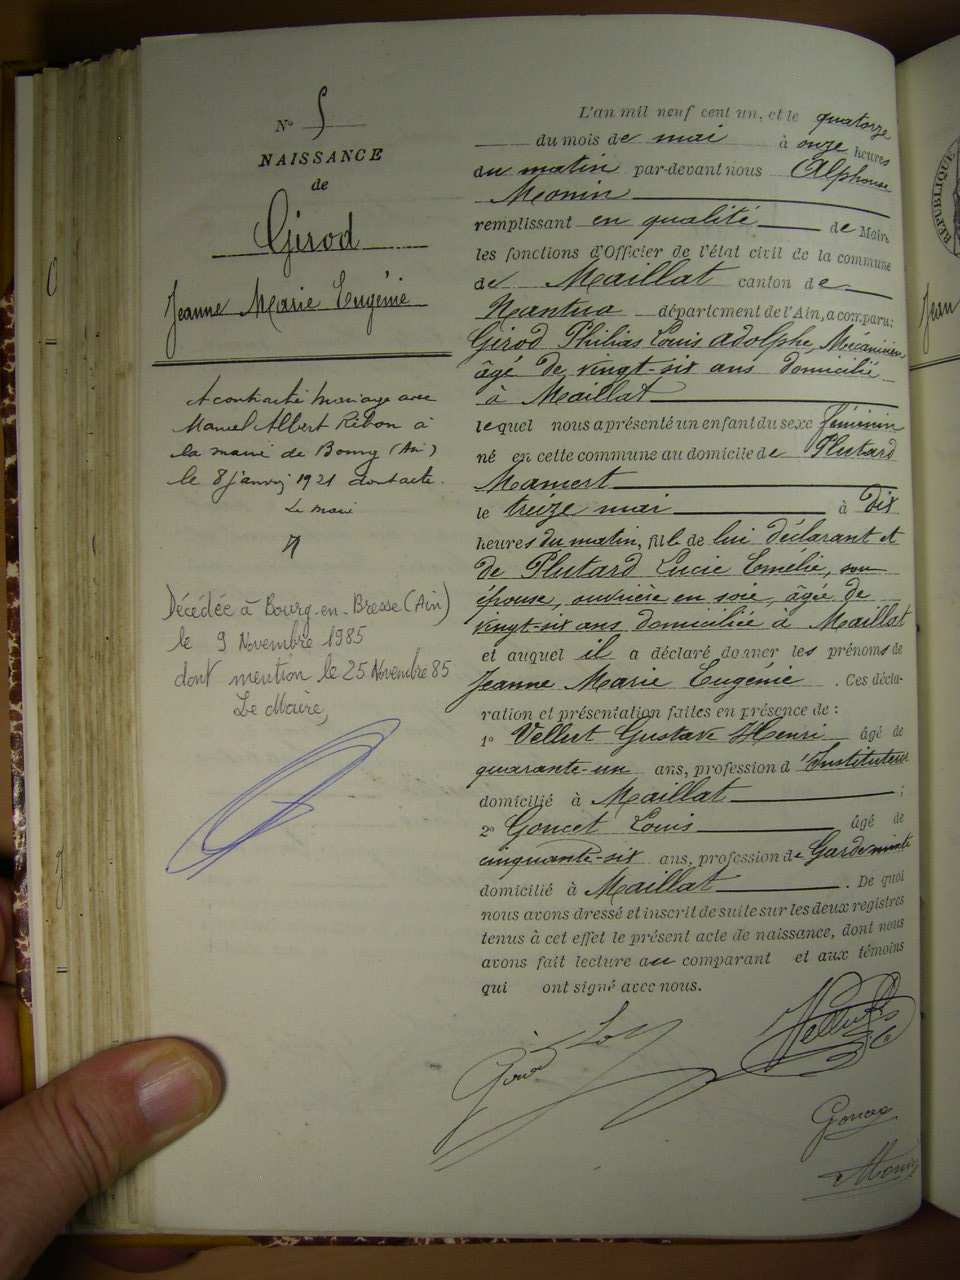 N° 5
NAISSANCE
de
Girod
Jeanne Marie Eugénie
A contracté mariage avec
Marcel Albert Ribon à
la mairie de Bourg (Ain)
le 8 janvier 1921 dont acte.
Le maire
Décédée à Bourg-en-Bresse (Ain)
le 9 Novembre 1985
dont mention le 25 Novembre 85
Le Maire,
L'an mil neuf cent un, et le quatorze
du mois de mai à onze heures
du matin par-devant nous Alphonse
Monin
remplissant en qualité de Maire
les fonctions d'Officier de l'état civil de la commune
de Maillat canton de
Nantua département de l'Ain, a comparu:
Girod Philias Louis Adolphe, Mécanicien
âgé de vingt-six ans domicilié
à Maillat
lequel nous a présenté un enfant du sexe féminin
né en cette commune au domicile de Plutard
Mamert
le treize mai à dix
heures du matin, fille de lui déclarant et
de Plutard Lucie Emélie, son
épouse, ouvrière en soie, âgée de
vingt-six ans domiciliée à Maillat
et auquel il a déclaré donner les prénoms de
Jeanne Marie Eugénie . Ces décla-
ration et présentation faites en présence de :
1° Vellut Gustave Henri âgé de
quarante-un ans, profession d'Instituteur
domicilié à Maillat ;
2° Goncet Louis âgé de
cinquante-six ans, profession de Garde mixte
domicilié à Maillat . De quoi
nous avons dressé et inscrit de suite sur les deux registres
tenus à cet effet le présent acte de naissance, dont nous
avons fait lecture au comparant et aux témoins
qui ont signé avec nous.
Girod
Vellut
Goncet
Monin
RÉPUBLIQUE
Jean